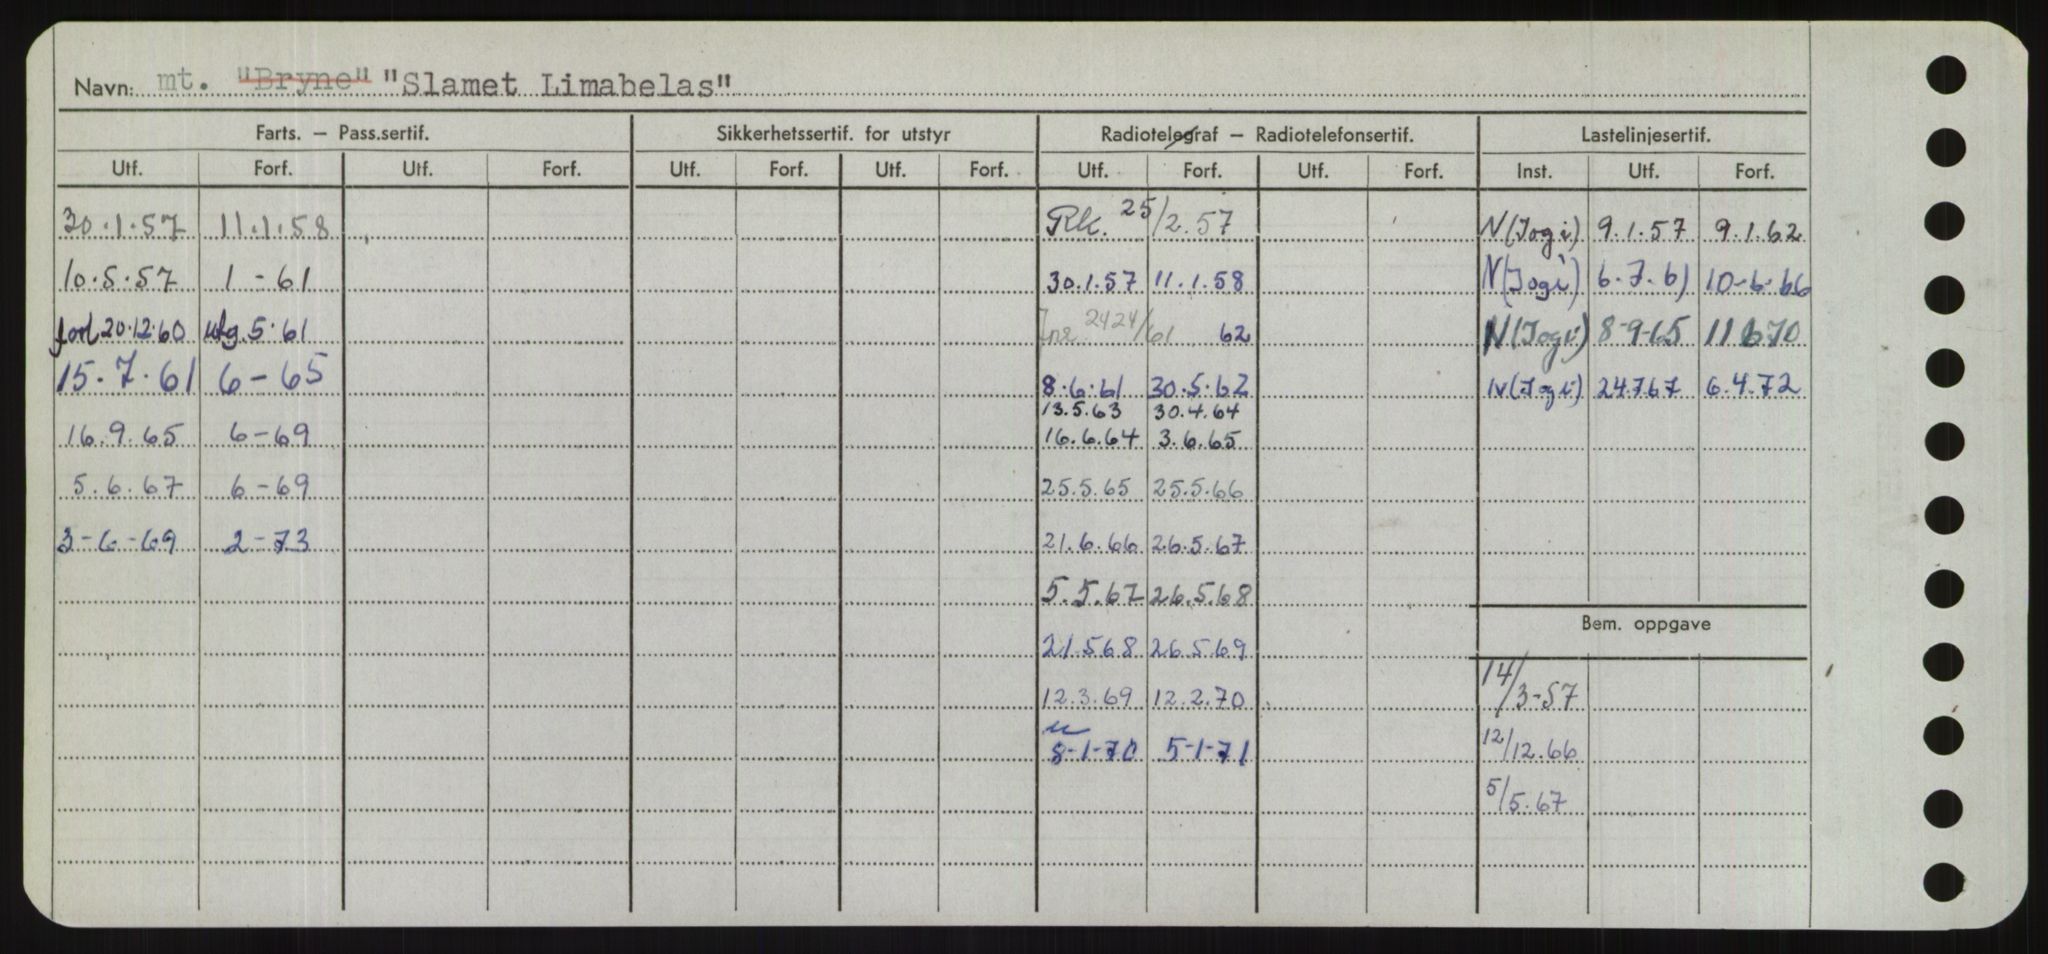 Navn: mt. "Bryne" "Slamet Limabelas"
Farts. – Pass.sertif. Sikkerhetssertif. for utstyr Radiotelegraf – Radiotelefonsertif. Lastelinjesertif.
Utf. Forf. Utf. Forf. Utf. Forf. Utf. Forf. Utf. Forf. Utf. Forf. Inst. Utf. Forf.
30.1.57 11.1.58 Rk. 25/2.57 N(Jogi) 9.1.57 9.1.62
10.5.57 1-61 30.1.57 11.1.58 N(Jogi) 6.7.61 10-6-66
forl 20.12.60 utg. 5.61 Jnr. 2424/61 62 N(Jogi) 8-9-65 11 6 70
15.7.61 6-65 8.6.61 30.5.62 N(Jogi) 24.7.67 6.4.72
13.5.63 30.4.64
16.9.65 6-69 16.6.64 3.6.65
5.6.67 6-69 25.5.65 25.5.66
3-6-69 2-73 21.6.66 26.5.67
5.5.67 26.5.68
Bem. oppgave
21.5.68 26.5.69
14/3-57
12.3.69 12.2.70
8-1-70 5-1-71 12/12.66
5/5.67